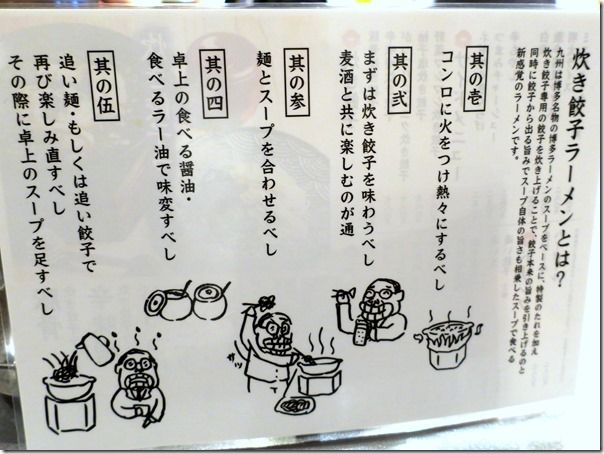 炊き餃子ラーメンとは？
九州は博多名物の博多ラーメンのスープをベースに、特製のたれを加え
炊き餃子専用の餃子を炊き上げることで、餃子本来の旨みを引き上げるのと
同時に餃子から出る旨みでスープ自体の旨さも相乗したスープで食べる
新感覚のラーメンです。
其の壱
コンロに火をつけ熱々にするべし
其の弐
まずは炊き餃子を味わうべし
麦酒と共に楽しむのが通
其の参
麺とスープを合わせるべし
其の四
卓上の食べる醤油・
食べるラー油で味変すべし
其の伍
追い麺・もしくは追い餃子で
再び楽しみ直すべし
その際に卓上のスープを足すべし
サッ